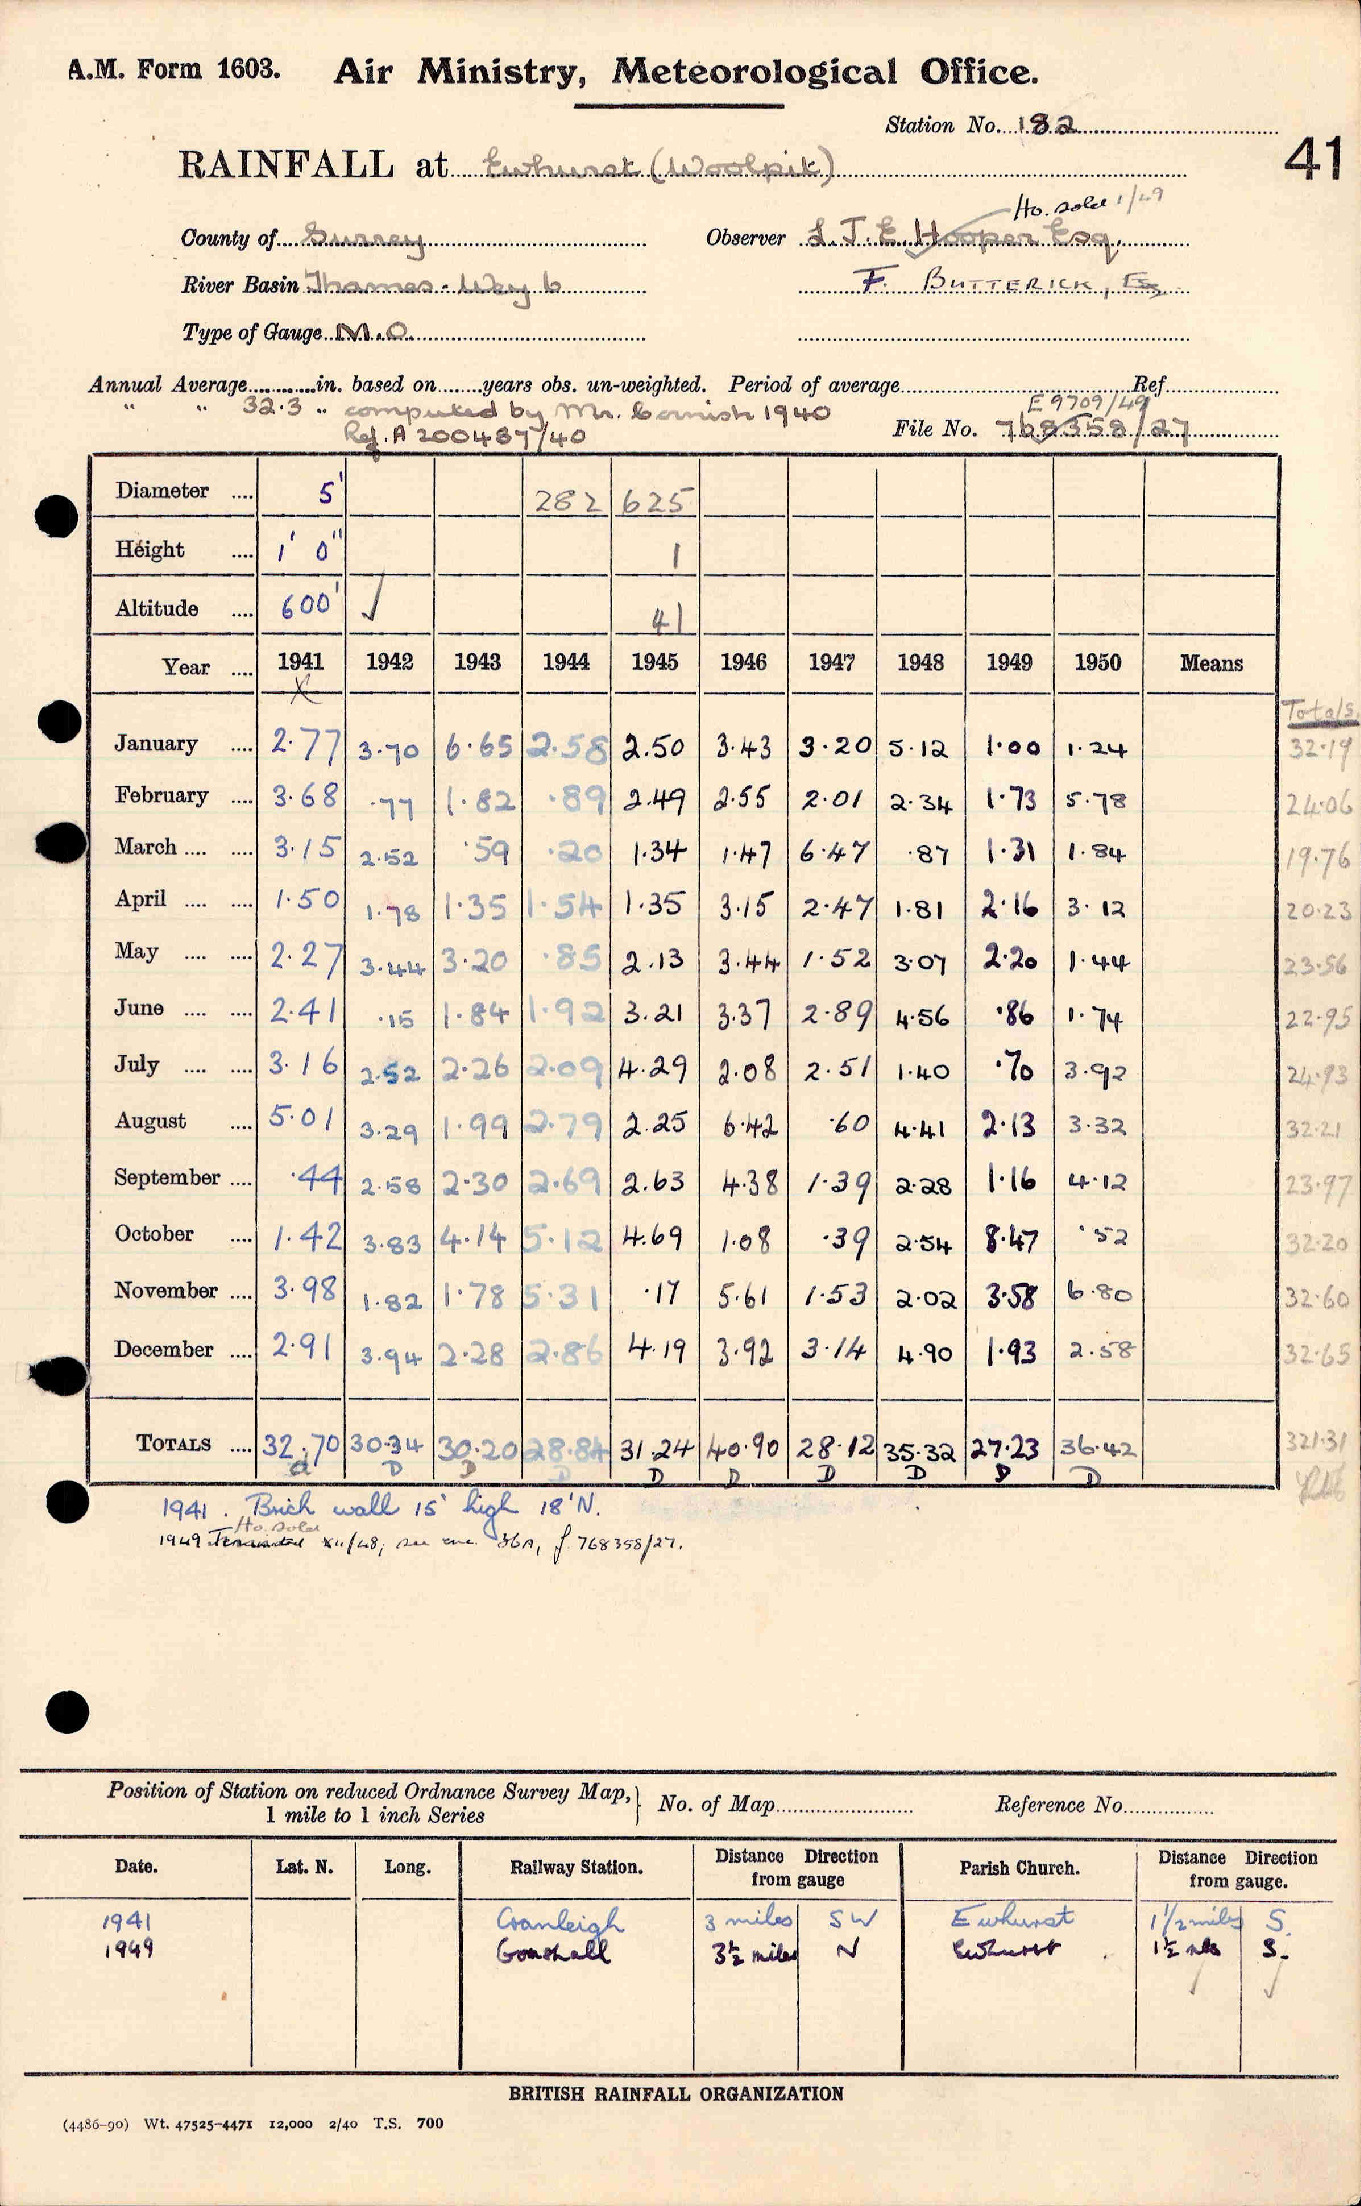 A.M. Form 1603. Air Ministry, Meteorological Office.
Station No. 182
41
RAINFALL at Ewhurst (Woolpit)
Ho. sold 1/49
County of Surrey Observer L. J. E. Hooper Esq.
River Basin Thames - Wey b F. BUTTERICK, Esq
Type of Gauge M.O.
Annual Average ............in. based on.......years obs. un-weighted. Period of average.......... Ref..........
" " 32.3 " computed by Mr. Cornish 1940
E 9709/49
Ref. A 200487/40 File No. 768358/27
Diameter .... 5" 282 625
Height .... 1' 0" 1
Altitude .... 600' ✓ 41
Year .... 1941 1942 1943 1944 1945 1946 1947 1948 1949 1950 Means
X
Totals
January .... 2.77 3.70 6.65 2.58 2.50 3.43 3.20 5.12 1.00 1.24 32.19
February .... 3.68 .77 1.82 .89 2.49 2.55 2.01 2.34 1.73 5.78 24.06
March .... .... 3.15 2.52 .59 .20 1.34 1.47 6.47 .87 1.31 1.84 19.76
April .... .... 1.50 1.78 1.35 1.54 1.35 3.15 2.47 1.81 2.16 3.12 20.23
May .... .... 2.27 3.44 3.20 .85 2.13 3.44 1.52 3.07 2.20 1.44 23.56
June .... .... 2.41 .15 1.84 1.92 3.21 3.37 2.89 4.56 .86 1.74 22.95
July .... .... 3.16 2.52 2.26 2.09 4.29 2.08 2.51 1.40 .70 3.92 24.93
August .... 5.01 3.29 1.99 2.79 2.25 6.42 .60 4.41 2.13 3.32 32.21
September .... .44 2.58 2.30 2.69 2.63 4.38 1.39 2.28 1.16 4.12 23.97
October .... 1.42 3.83 4.14 5.12 4.69 1.08 .39 2.54 8.47 .52 32.20
November .... 3.98 1.82 1.78 5.31 .17 5.61 1.53 2.02 3.58 6.80 32.60
December .... 2.91 3.94 2.28 2.86 4.19 3.92 3.14 4.90 1.93 2.58 32.65
TOTALS .... 32.70 30.34 30.20 28.84 31.24 40.90 28.12 35.32 27.23 36.42 321.31
d D D D D D D D D D
1941. Brick wall 15' high 18' N.
Ho. sold
1949 xii/48; see enc. 36A, f. 768358/27.
Position of Station on reduced Ordnance Survey Map, 1 mile to 1 inch Series No. of Map.......... Reference No..........
Date. Lat. N. Long. Railway Station. Distance from gauge Direction Parish Church. Distance from gauge. Direction
1941 Cranleigh 3 miles SW Ewhurst 1 1/2 miles S.
1949 Gomshall 3½ miles N Ewhurst 1½ mls S.
BRITISH RAINFALL ORGANIZATION
(4486-90) Wt. 47525-4471 12,000 2/40 T.S. 700